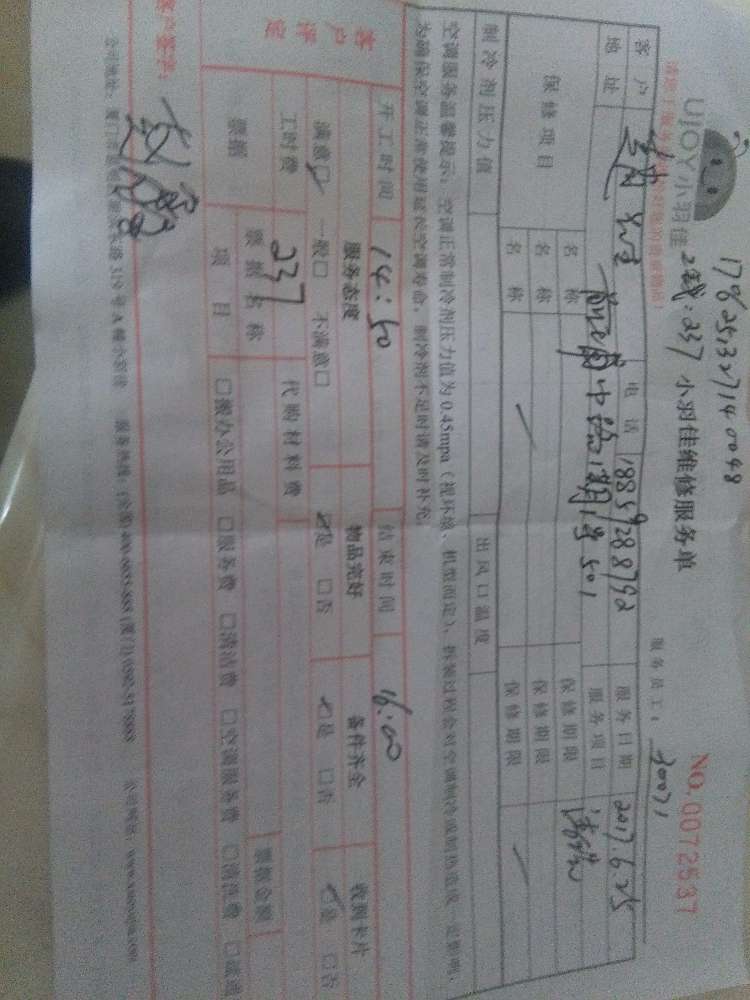 1786251327140048
2载:237
UJOY小羽佳
小羽佳维修服务单
NO.0072537
服务员工: 30071
客户
先生
电话
服务日期 2017.6.25
地址
1号501
服务项目 清洗
保修项目
名称
保修期限
名称
保修期限
名称
保修期限
制冷剂压力值
出风口温度
空调服务温馨提示:空调正常制冷剂压力值为0.45mpa(视环境、机型而定),拆装过程会对空调制冷或制热造成一定影响,
为确保空调正常使用延长空调寿命,制冷剂不足时请及时补充。
开工时间 14:50
结束时间 16:00
客户评定
服务态度
物品完好
备件齐全
收到卡片
满意☑ 一般□ 不满意□
☑是 □否
☑是 □否
☑是 □否
工时费 237
代购材料费
票据
票据名称
票据金额
项目
□办公用品 □服务费 □清洁费 □空调服务费 □清洗费 □疏通
客户签字: